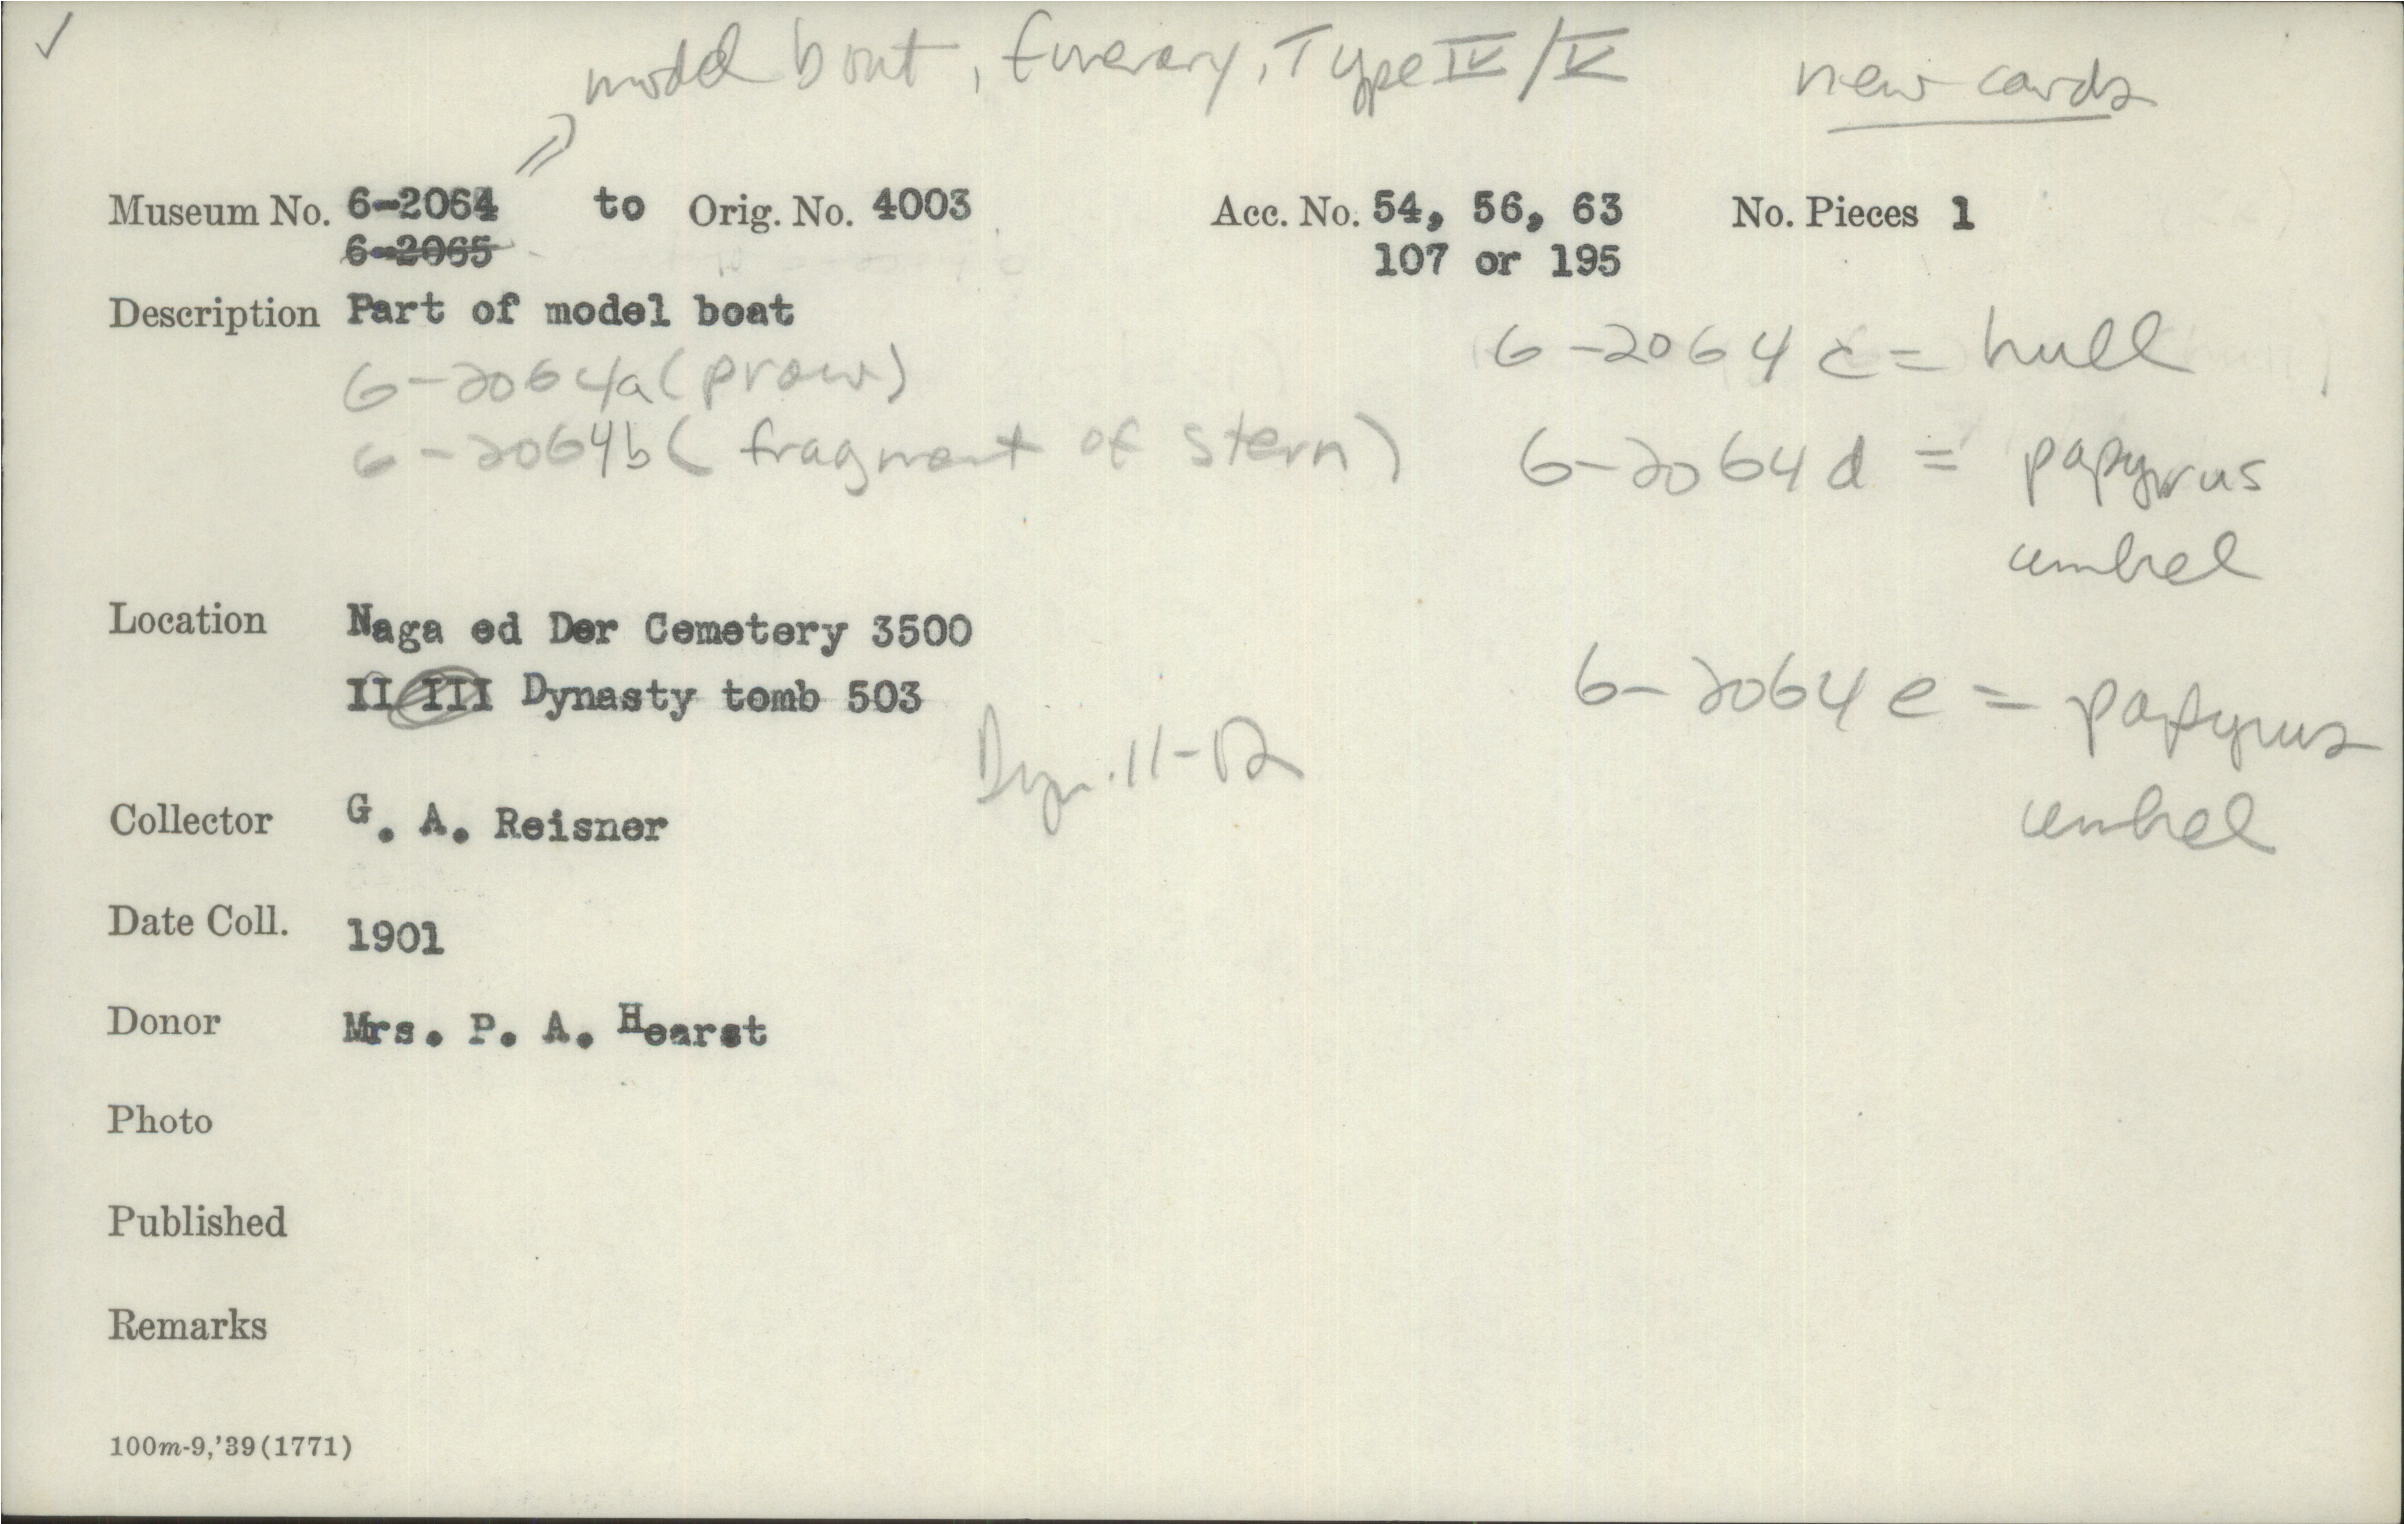 ✓ model boat, funerary, Type IV/V new cards
Museum No. 6-2064 to Orig. No. 4003 Acc. No. 54, 56, 63 No. Pieces 1
6-2065 107 or 195
Description Part of model boat
6-2064a (prow) 6-2064 c = hull
6-2064b ( fragment of stern) 6-2064 d = papyrus
umbel
Location Naga ed Der Cemetery 3500
II III Dynasty tomb 503 6-2064 e = papyrus
Dyn. 11-12
Collector G. A. Reisner umbel
Date Coll. 1901
Donor Mrs. P. A. Hearst
Photo
Published
Remarks
100m-9,'39(1771)